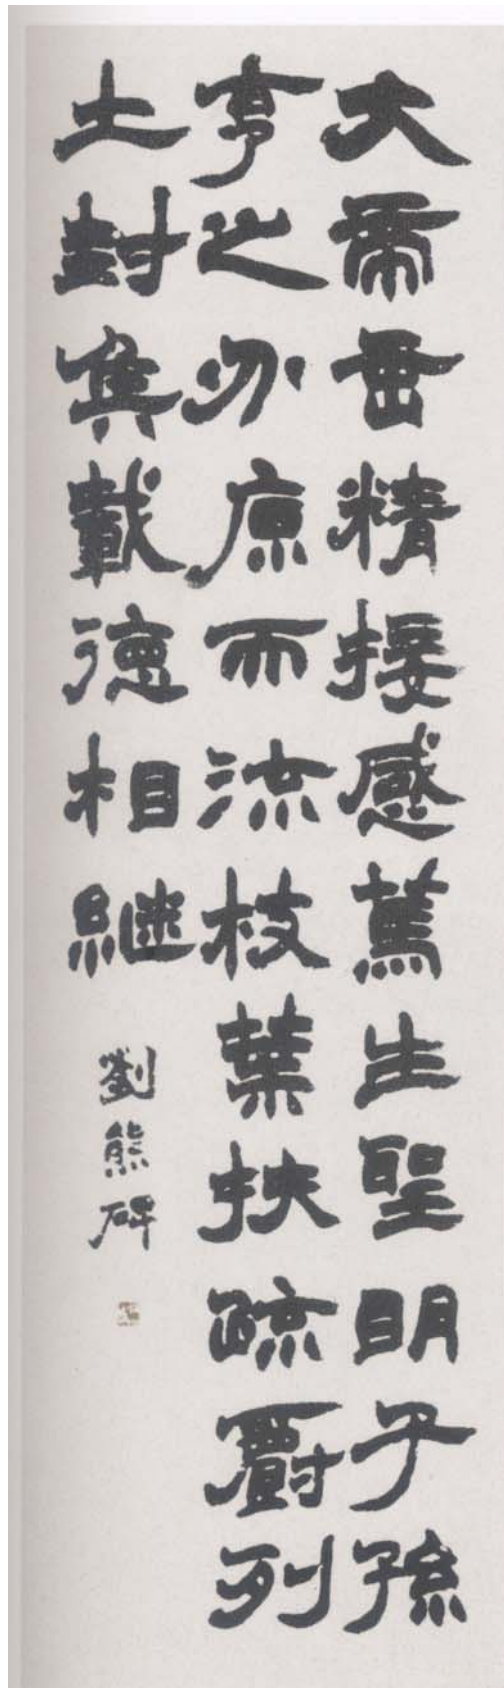 大帝垂精接感篤生聖明子孫
亨之分原而流枝葉扶疏爵列
土封矦載德相継
劉熊碑